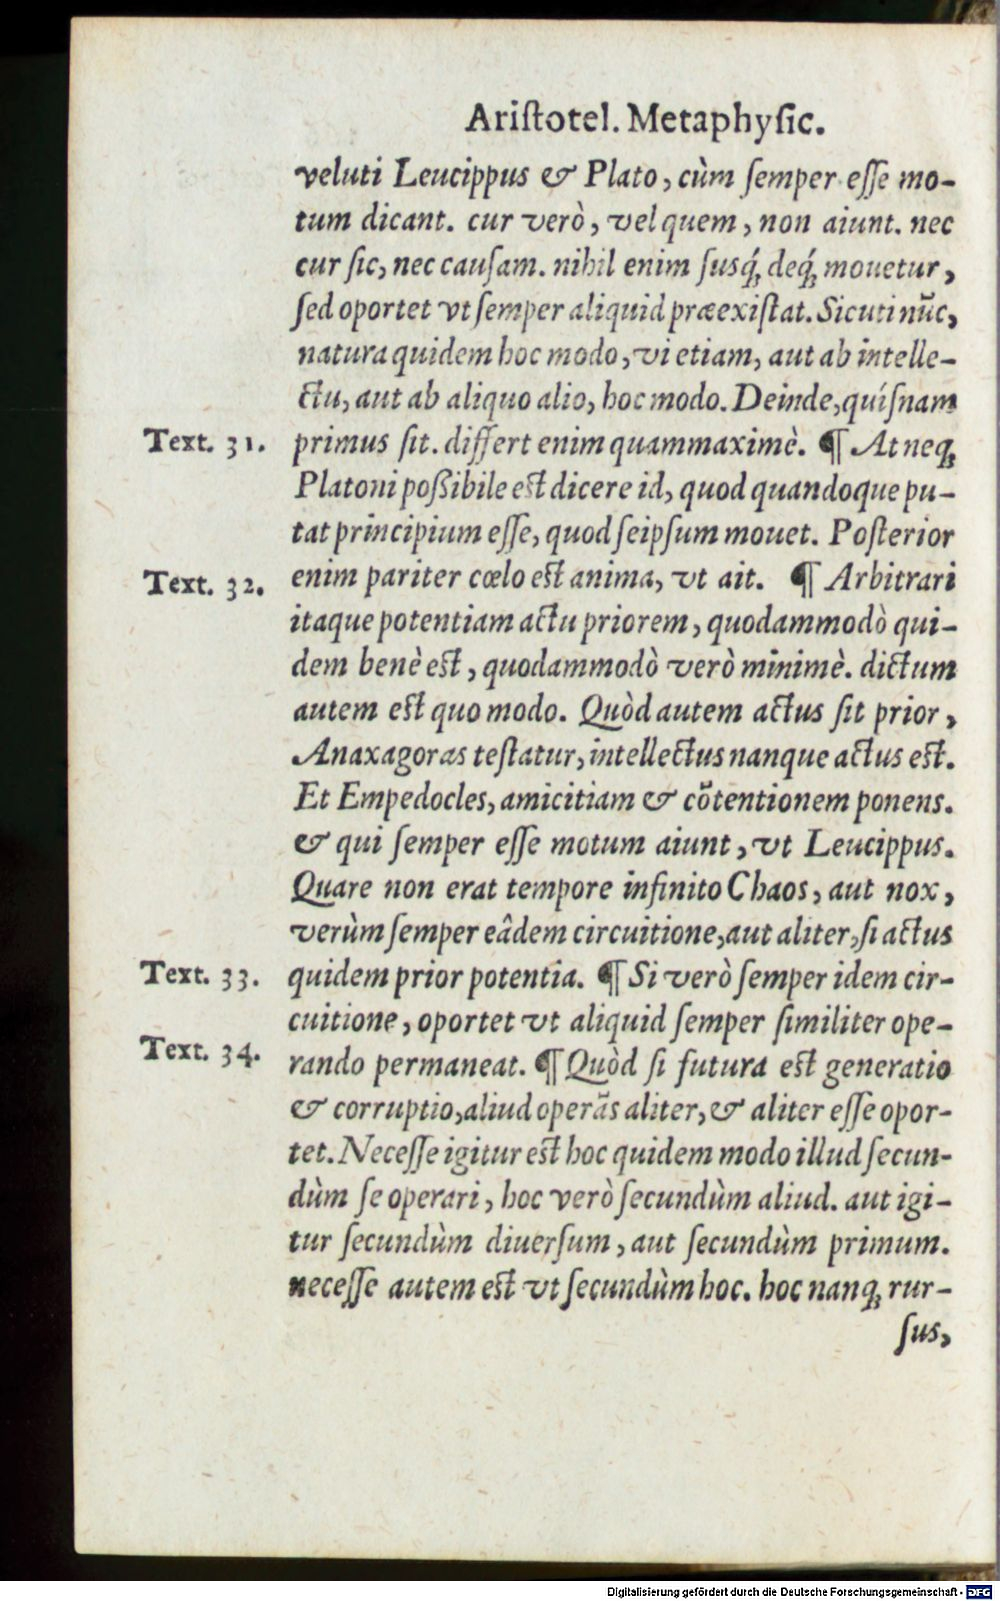 Ariſtotel. Metaphyſic.
veluti Leucippus & Plato, cùm ſemper eſſe mo-
tum dicant. cur verò, vel quem, non aiunt. nec
cur ſic, nec cauſam. nihil enim ſuſq́; deq́; mouetur,
ſed oportet vt ſemper aliquid præexiſtat. Sicuti nūc,
natura quidem hoc modo, vi etiam, aut ab intelle-
ctu, aut ab aliquo alio, hoc modo. Deinde, quíſnam
Text. 31. primus ſit. differt enim quammaximè. ¶ At neq;
Platoni poßibile eſt dicere id, quod quandoque pu-
tat principium eſſe, quod ſeipſum mouet. Poſterior
Text. 32. enim pariter cœlo eſt anima, vt ait. ¶ Arbitrari
itaque potentiam actu priorem, quodammodò qui-
dem benè eſt, quodammodò verò minimè. dictum
autem eſt quo modo. Quòd autem actus ſit prior,
Anaxagoras teſtatur, intellectus nanque actus eſt.
Et Empedocles, amicitiam & cōtentionem ponens.
& qui ſemper eſſe motum aiunt, vt Leucippus.
Quare non erat tempore infinito Chaos, aut nox,
verùm ſemper eâdem circuitione, aut aliter, ſi actus
Text. 33. quidem prior potentia. ¶ Si verò ſemper idem cir-
cuitione, oportet vt aliquid ſemper ſimiliter ope-
Text. 34. rando permaneat. ¶ Quòd ſi futura eſt generatio
& corruptio, aliud operās aliter, & aliter eſſe opor-
tet. Neceſſe igitur eſt hoc quidem modo illud ſecun-
dùm ſe operari, hoc verò ſecundùm aliud. aut igi-
tur ſecundùm diuerſum, aut ſecundùm primum.
neceſſe autem eſt vt ſecundùm hoc. hoc nanq; rur-
ſus,
Digitalisierung gefördert durch die Deutsche Forschungsgemeinschaft - DFG